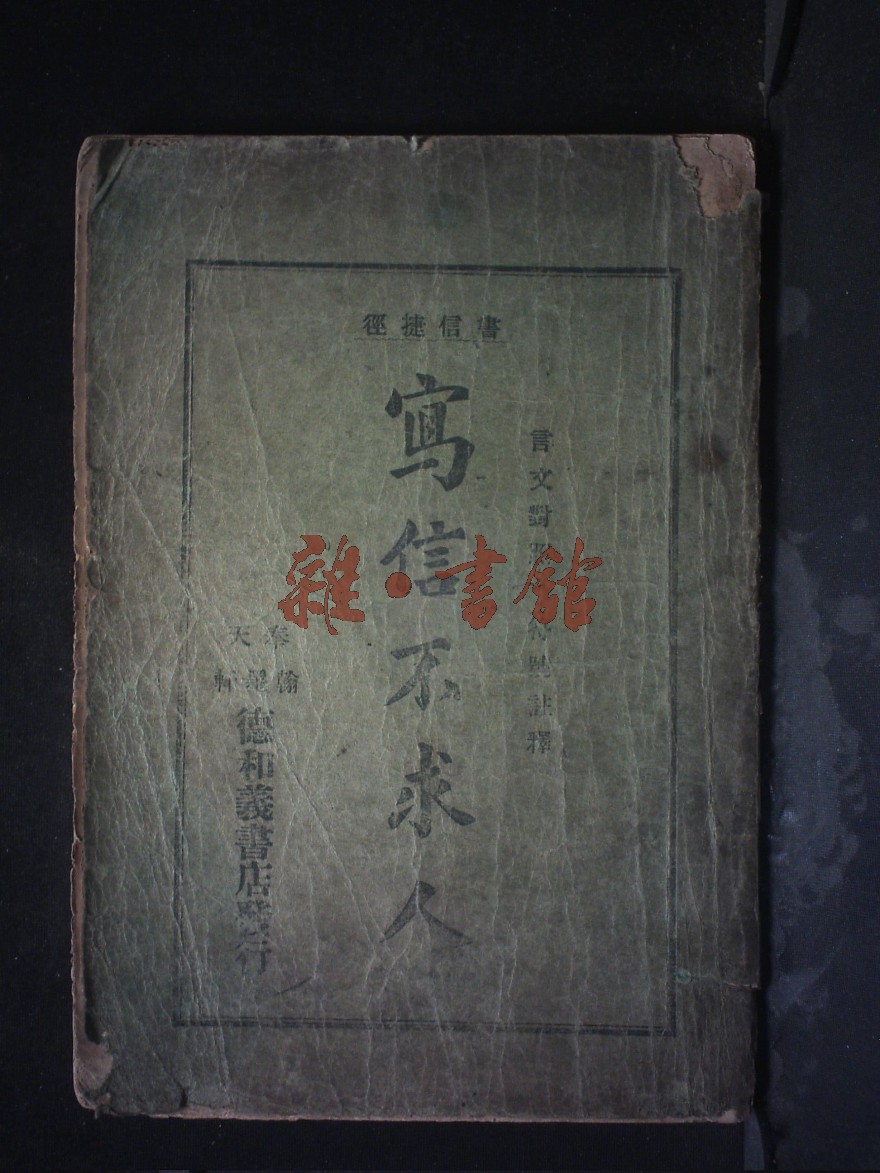 書信捷徑
言文對照註釋
寫信不求人
奉天
翰墨軒
德和義書店發行
雜·書館